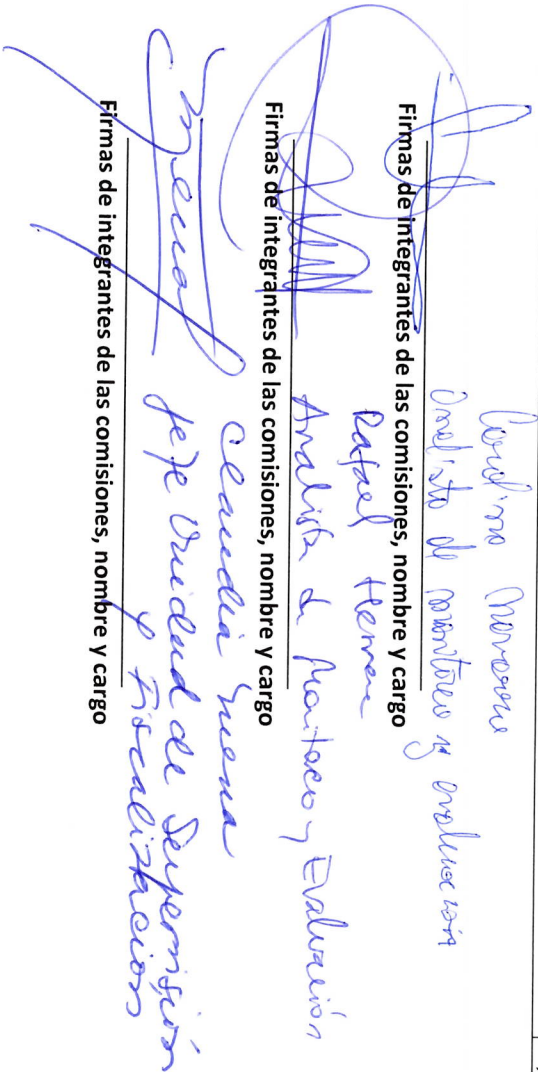 Carolina Navarrete
Analista de monitoreo y evaluación
Firmas de integrantes de las comisiones, nombre y cargo
Rafael
Analista de Monitoreo y Evaluación
Firmas de integrantes de las comisiones, nombre y cargo
Claudia Mena
Jefe Unidad de Supervisión
y Fiscalización
Firmas de integrantes de las comisiones, nombre y cargo